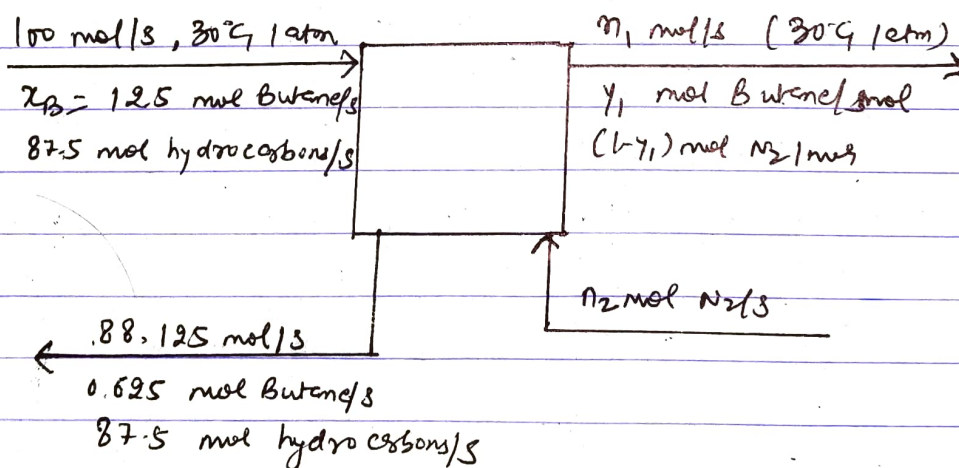 100 mol/s, 30°C, 1 atm
x_B = 12.5 mol Butane/s
87.5 mol hydrocarbons/s
n₁ mol/s (30°C, 1 atm)
y₁ mol Butane/mol
(1-y₁) mol N₂/mol
n₂ mol N₂/s
88.125 mol/s
0.625 mol Butane/s
87.5 mol hydrocarbons/s